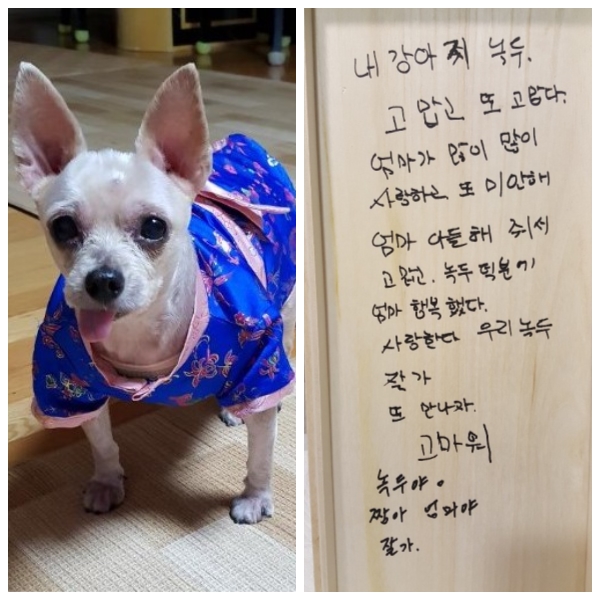 내 강아지 녹두.
고맙고 또 고맙다.
엄마가 많이 많이
사랑하고 또 미안해
엄마 아들해 줘서
고맙고. 녹두 덕분에
엄마 행복했다.
사랑한다 우리 녹두
잘가
또 만나자.
고마워
녹두야。
짱아 엄마야
잘가.